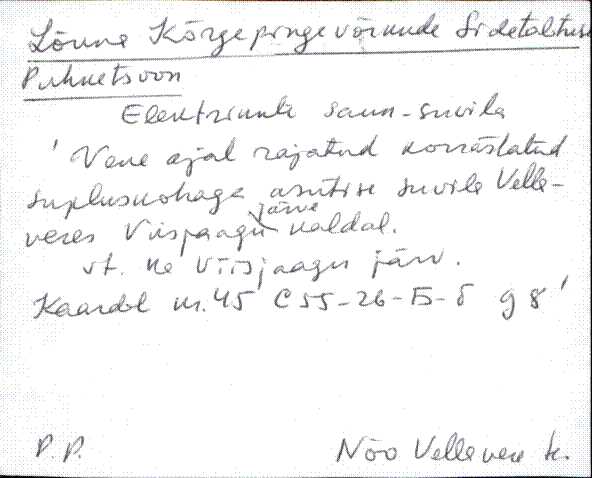 Lõuna Kõrgepingevõrkude Sidetalituse
Puhketsoon
Elektrimite saun-suvila
' Vene ajal rajatud korrastatud
supluskohaga asutise suvila Velle-
veres Viisjaagu järve kaldal.
vt. ka Viisjaagu järv.
Kaardil nr. 45 C 55-26-Б-б g 8 '
P.P. Nõo Vellevere k.